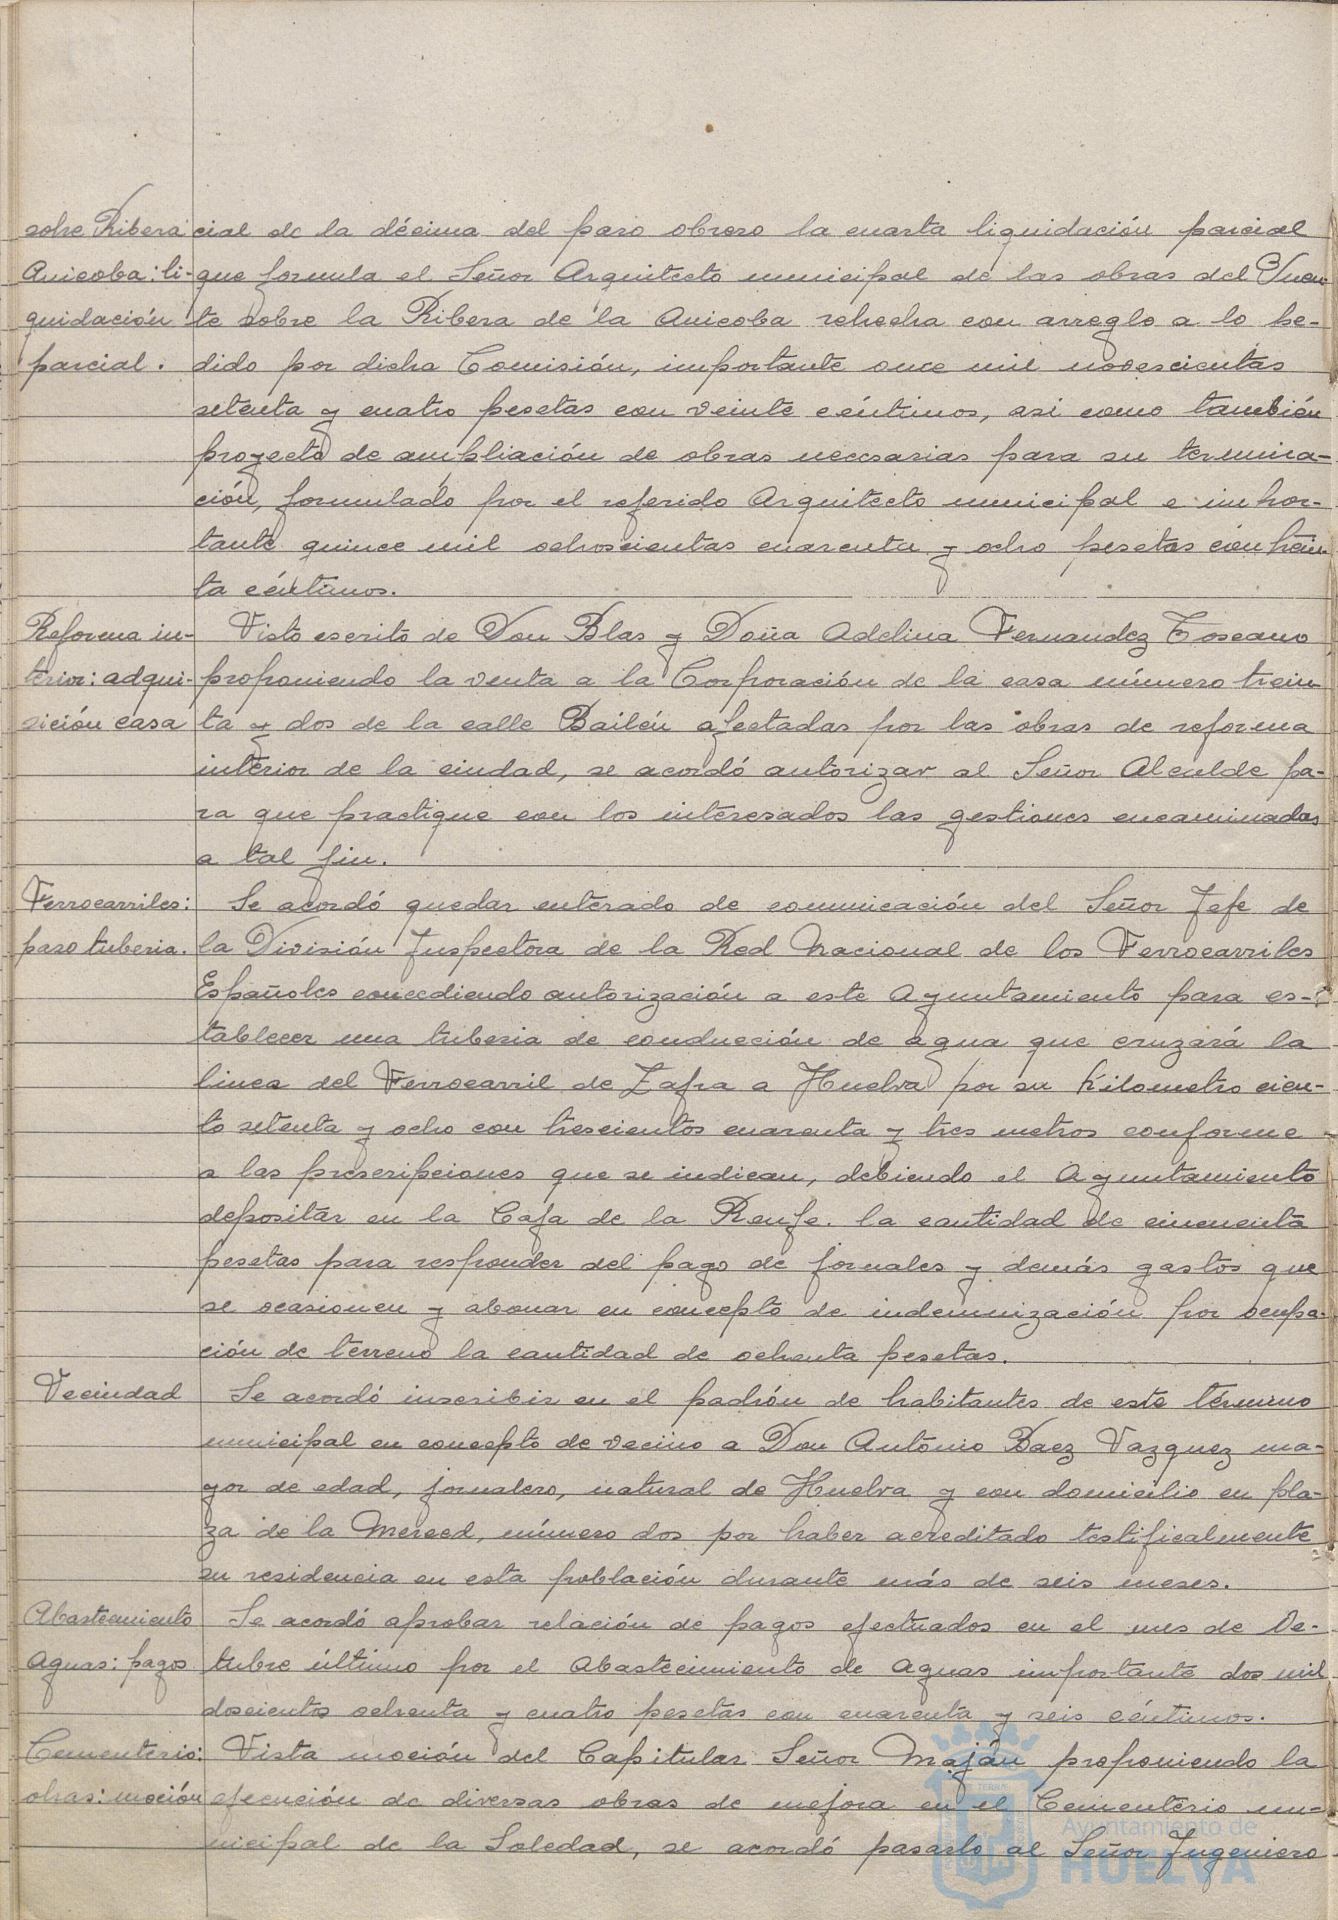 sobre Ribera
Anicoba: li-
quidación
parcial.
cial de la décima del paro obrero la cuarta liquidación parcial
que formula el Señor Arquitecto municipal de las obras del Puen-
te sobre la Ribera de la Anicoba rehecha con arreglo a lo pe-
dido por dicha Comisión, importante once mil novescientas
setenta y cuatro pesetas con veinte céntimos, asi como también
proyecto de ampliación de obras necesarias para su termina-
ción, formulado por el referido Arquitecto municipal e impor-
tante quince mil ochoscientas cuarenta y ocho pesetas con trein-
ta céntimos.
Reforma in-
terior: adqui-
sición casa
Visto escrito de Don Blas y Doña Adelina Fernandez Toscano
proponiendo la venta a la Corporación de la casa número trein-
ta y dos de la calle Bailén afectadas por las obras de reforma
interior de la ciudad, se acordó autorizar al Señor Alcalde pa-
ra que practique con los interesados las gestiones encaminadas
a tal fin.
Ferrocarriles:
paso tuberia.
Se acordó quedar enterado de comunicación del Señor Jefe de
la División Inspectora de la Red Nacional de los Ferrocarriles
Españoles concediendo autorización a este Ayuntamiento para es-
tablecer una tuberia de conducción de agua que cruzará la
linea del Ferrocarril de Zafra a Huelva por su kilometro cien-
to setenta y ocho con trescientos cuarenta y tres metros conforme
a las prescripciones que se indican, debiendo el Ayuntamiento
depositar en la Caja de la Renfe. la cantidad de cincuenta
pesetas para responder del pago de jornales y demás gastos que
se ocasionen y abonar en concepto de indemnización por ocupa-
ción de terreno la cantidad de ochenta pesetas.
Vecindad
Se acordó inscribir en el padrón de habitantes de este término
municipal en concepto de vecino a Don Antonio Baez Vazquez ma-
yor de edad, jornalero, natural de Huelva y con domicilio en pla-
za de la Merced, número dos por haber acreditado testificalmente
su residencia en esta población durante más de seis meses.
Abastecimiento
Aguas: pagos
Se acordó aprobar relación de pagos efectuados en el mes de Oc-
tubre último por el Abastecimiento de Aguas importante dos mil
doscientos ochenta y cuatro pesetas con cuarenta y seis céntimos.
Cementerio:
obras: moción
Vista moción del Capitular Señor Maján proponiendo la
ejecución de diversas obras de mejora en el Cementerio mu-
nicipal de la Soledad, se acordó pasarlo al Señor Ingeniero
Ayuntamiento de
HUELVA